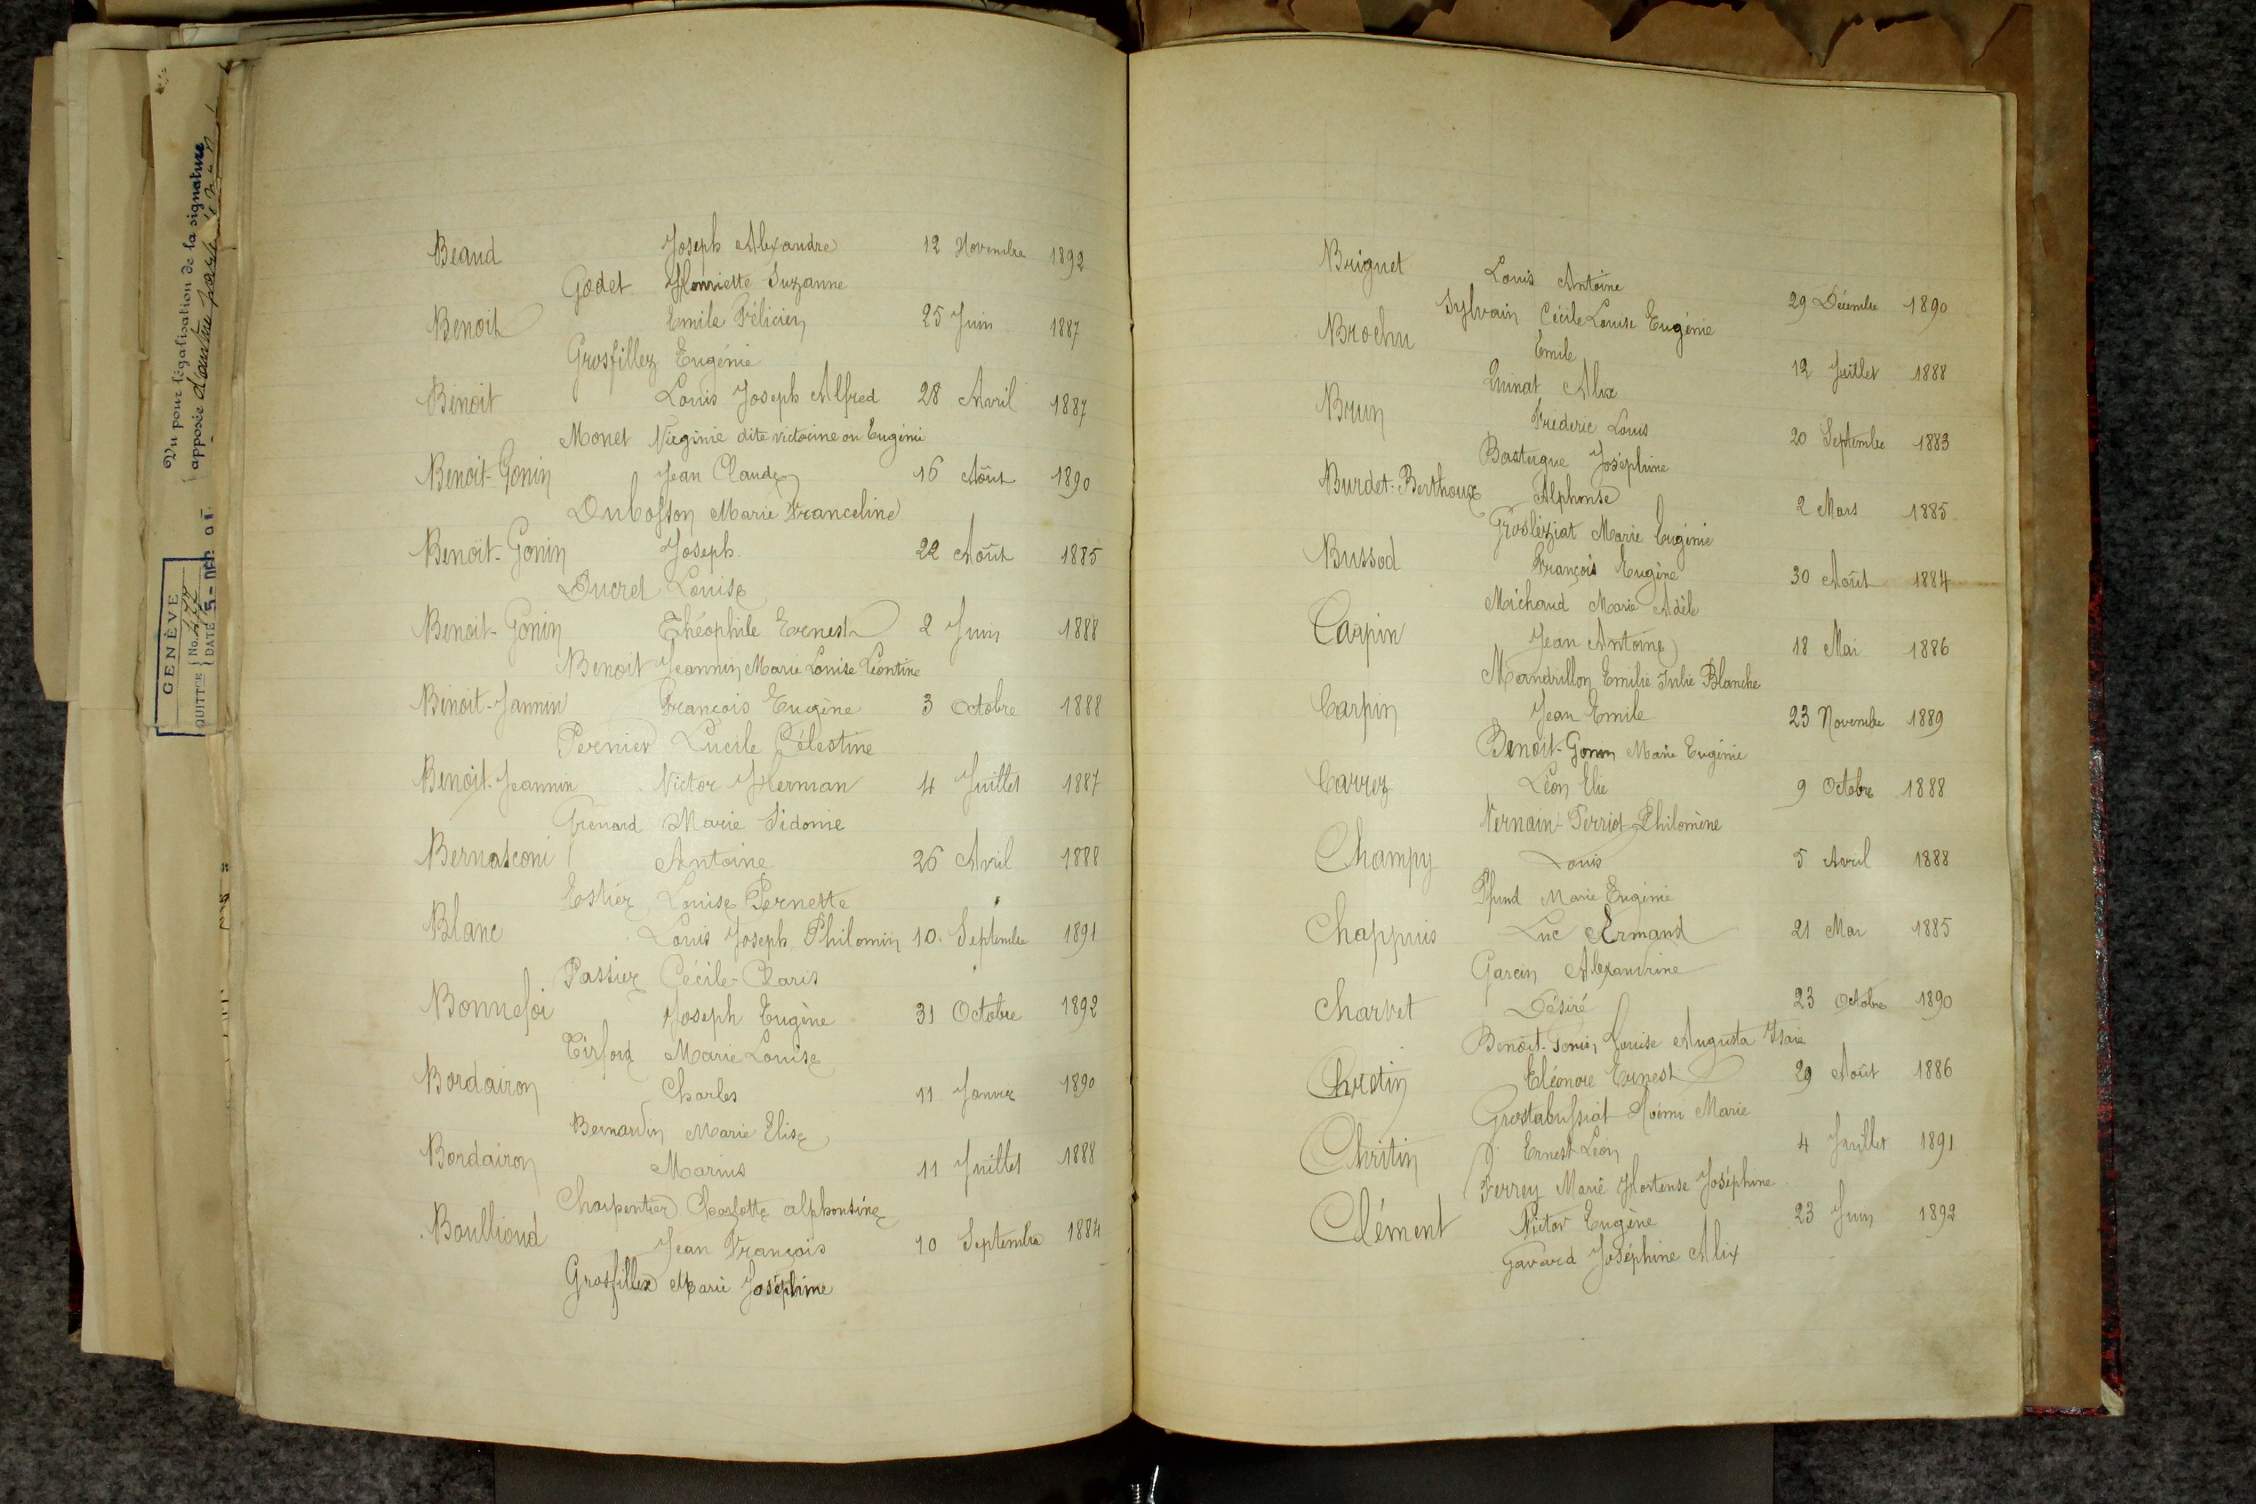 Vu pour légalisation de la signature
apposée d'autre part
GENÈVE
QUITTCE No.
DATE 5 - DEC 01
Beaud Joseph Alexandre 12 Novembre 1892
Godet Henriette Suzanne
Benoit Emile Félicien 25 Juin 1887
Grosfillez Eugénie
Benoit Louis Joseph Alfred 28 Avril 1887
Monet Virginie dite victorine ou Eugénie
Benoit-Gonin Jean Claude 16 Août 1890
Dubosson Marie Franceline
Benoit-Gonin Joseph 22 Août 1885
Ducret Louise
Benoit-Gonin Théophile Ernest 2 Juin 1888
Benoit Jeannin Marie Louise Léontine
Benoit-Jannin François Eugène 3 Octobre 1888
Pernier Lucile Célestine
Benoit-Jeannin Victor Herman 4 Juillet 1887
Grenard Marie Sidonie
Bernasconi Antoine 26 Avril 1888
Estier Louise Pernette
Blanc Louis Joseph Philomin 10 Septembre 1891
Passier Cécile-Claris
Bonnefoi Joseph Eugène 31 Octobre 1892
Marie Louise
Bordairon Charles 11 Janvier 1890
Bernardin Marie Elise
Bordairon Marius 11 Juillet 1888
Charpentier Charlotte alphonsine
Boullioud Jean François 10 Septembre 1884
Grosfillex Marie Joséphine
Briguet Louis Antoine 29 Décembre 1890
Sylvain Cécile Louise Eugénie
Brochu Emile 12 Juillet 1888
Quinat Alix
Brun Frédéric Louis 20 Septembre 1883
Bastugue Joséphine
Burdet-Berthoux Alphonse 2 Mars 1885
Groslèziat Marie Eugénie
Bussod François Eugène 30 Août 1884
Michaud Marie Adèle
Carpin Jean Antoine 18 Mai 1886
Mandrillon Emilie Julie Blanche
Carpin Jean Emile 23 Novembre 1889
Benoit-Gonin Marie Eugénie
Carrez Léon Elie 9 Octobre 1888
Vernain-Perriot Philomène
Champy Louis 5 Avril 1888
Pfund Marie Eugénie
Chappuis Luc Armand 21 Mai 1885
Garcin Alexandrine
Charvet Désiré 23 Octobre 1890
Benoit-Gonin Louise Augusta Isaïe
Chretin Eléonore Ernest 29 Août 1886
Grostabussiat Noémi Marie
Chritin Ernest Léon 4 Juillet 1891
Ferrey Marie Hortense Joséphine
Clément Victor Eugène 23 Juin 1892
Gavard Joséphine Alix